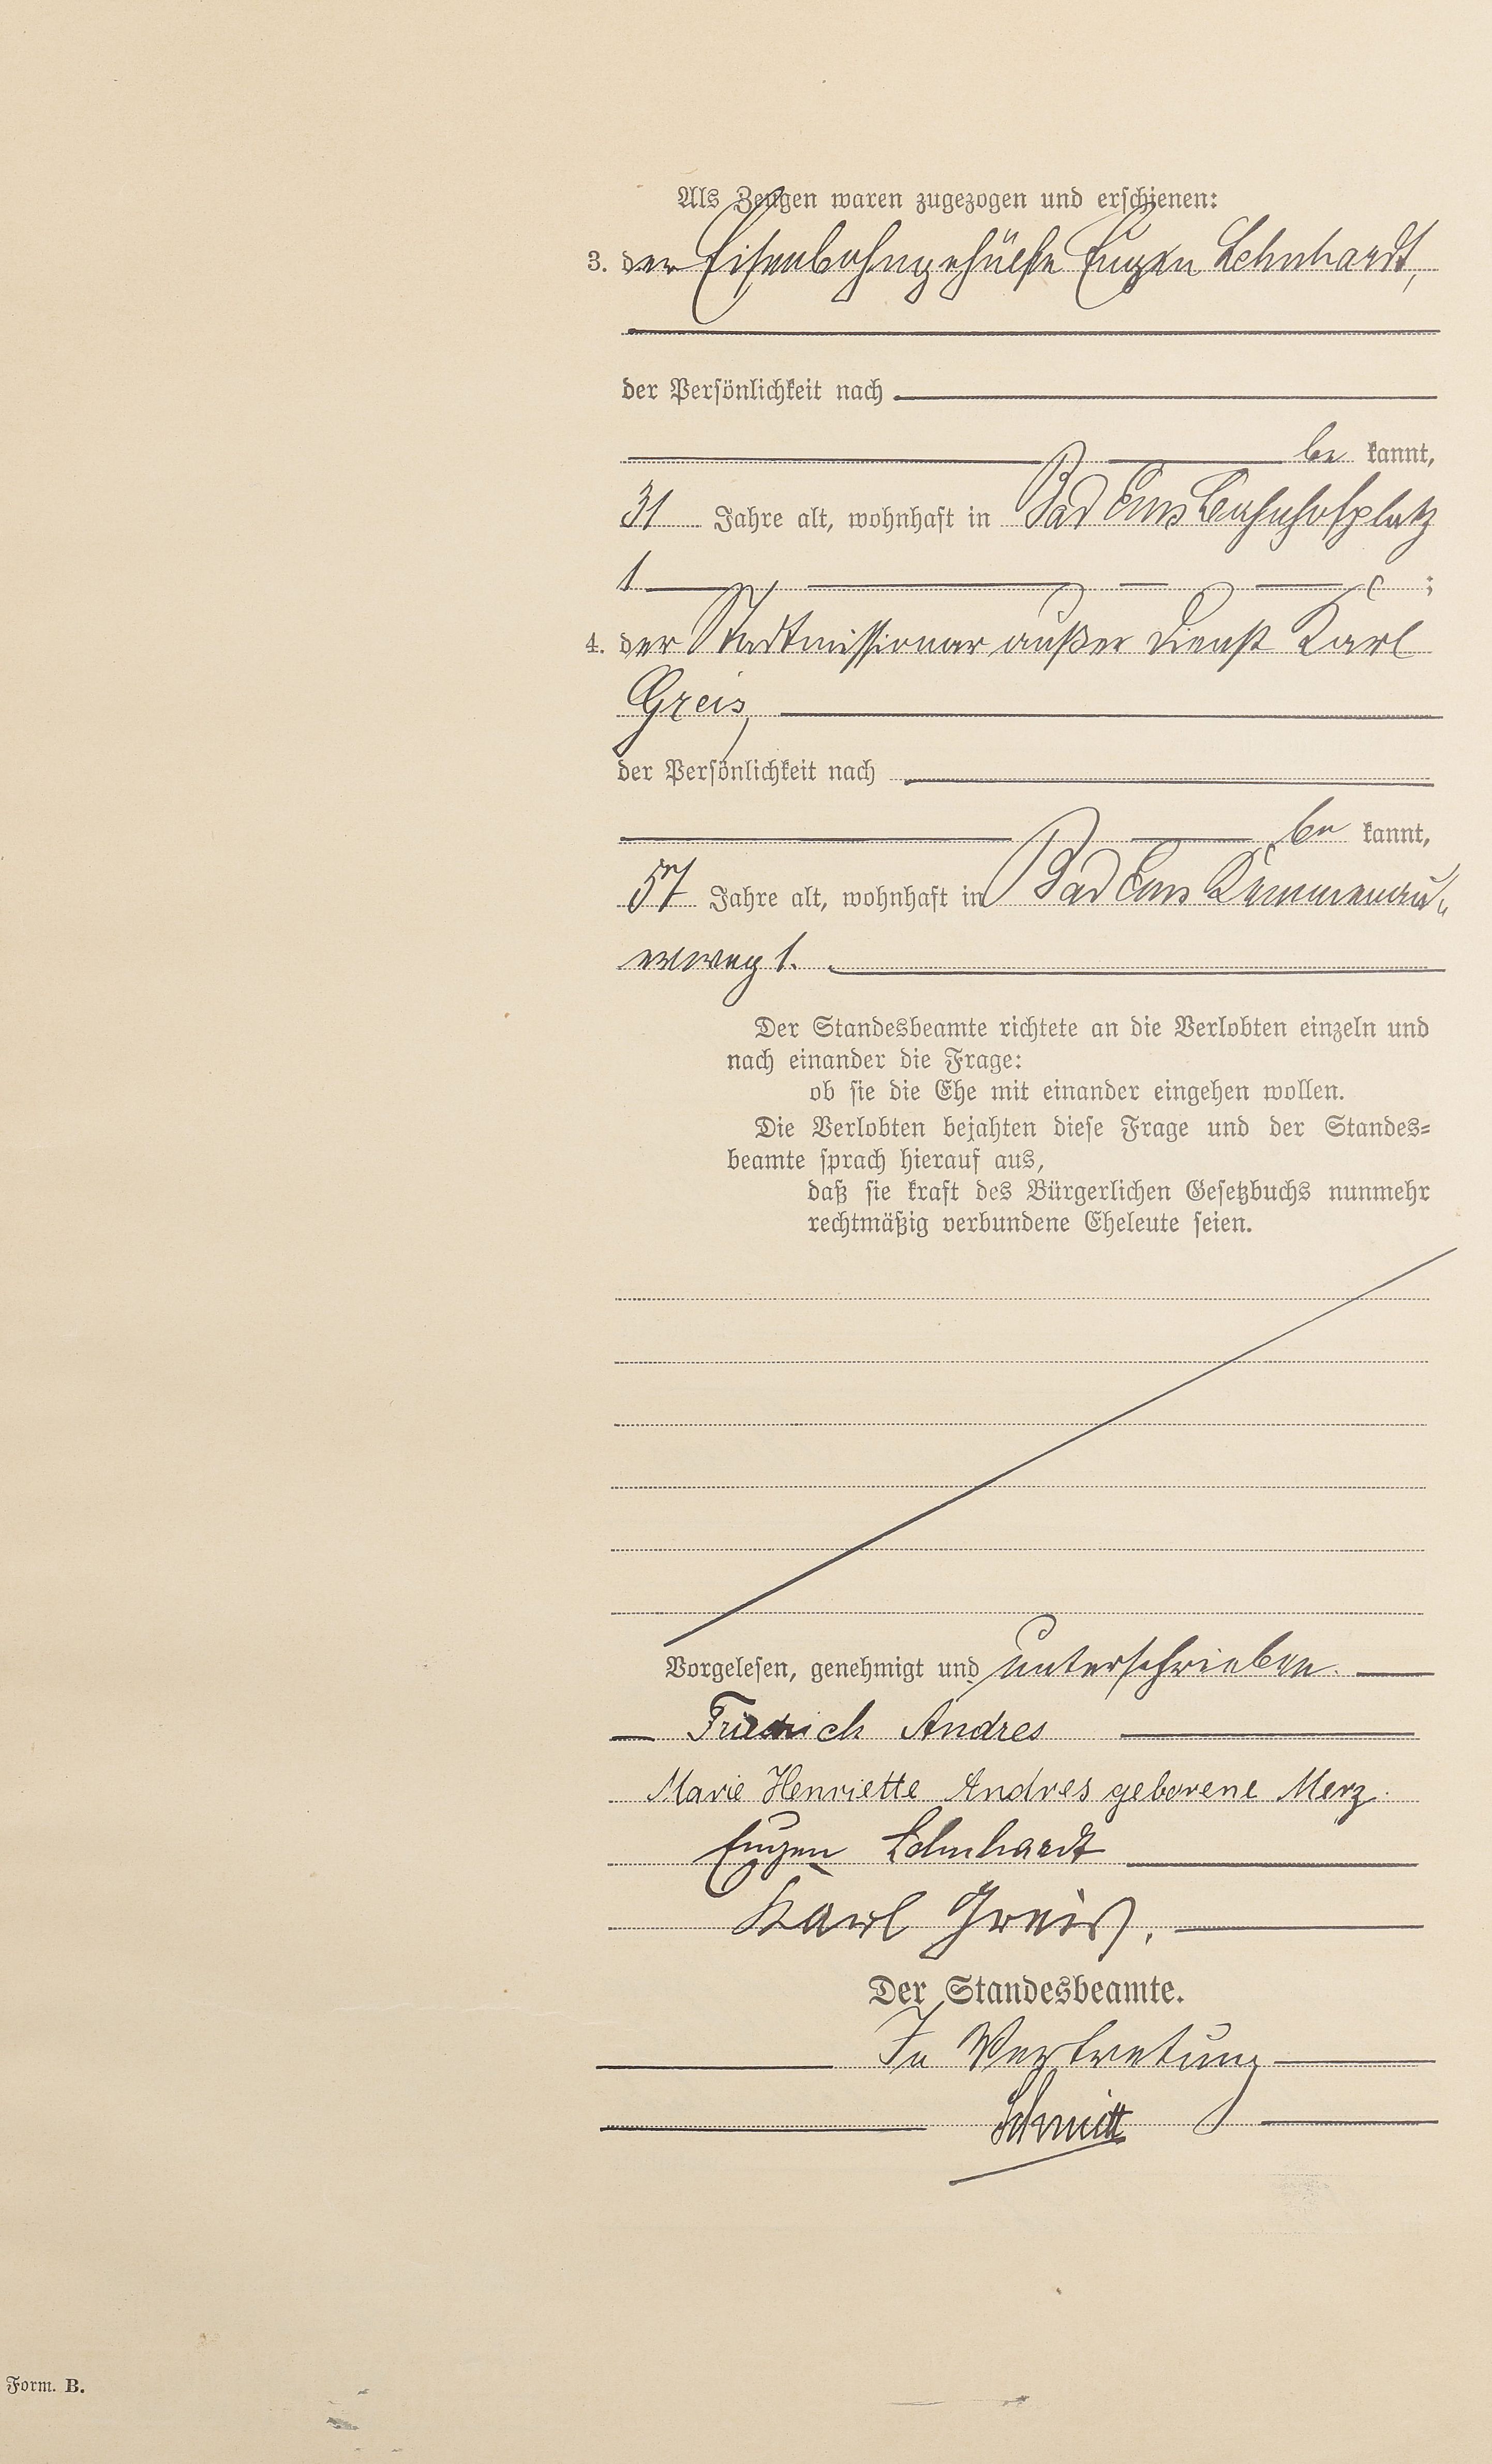 Als Zeugen waren zugezogen und erschienen:
3. der Eisenbahngehülfe Eugen Lehnhardt,
der Persönlichkeit nach
be kannt,
31 Jahre alt, wohnhaft in Bad Ems Bahnhofplatz
1 ;
4. der Stadtmissionar außer Dienst Karl
Greis,
der Persönlichkeit nach
be kannt,
57 Jahre alt, wohnhaft in Bad Ems Kemmenau„
erweg 1.
Der Standesbeamte richtete an die Verlobten einzeln und
nach einander die Frage:
ob sie die Ehe mit einander eingehen wollen.
Die Verlobten bejahten diese Frage und der Standes=
beamte sprach hierauf aus,
daß sie kraft des Bürgerlichen Gesetzbuchs nunmehr
rechtmäßig verbundene Eheleute seien.
Vorgelesen, genehmigt und unterschrieben.
Friedrich Andres
Marie Henriette Andres geborene Merz.
Eugen Lehnhardt
Karl Greis.
Der Standesbeamte.
In Vertretung
Schmitt
Form. B.